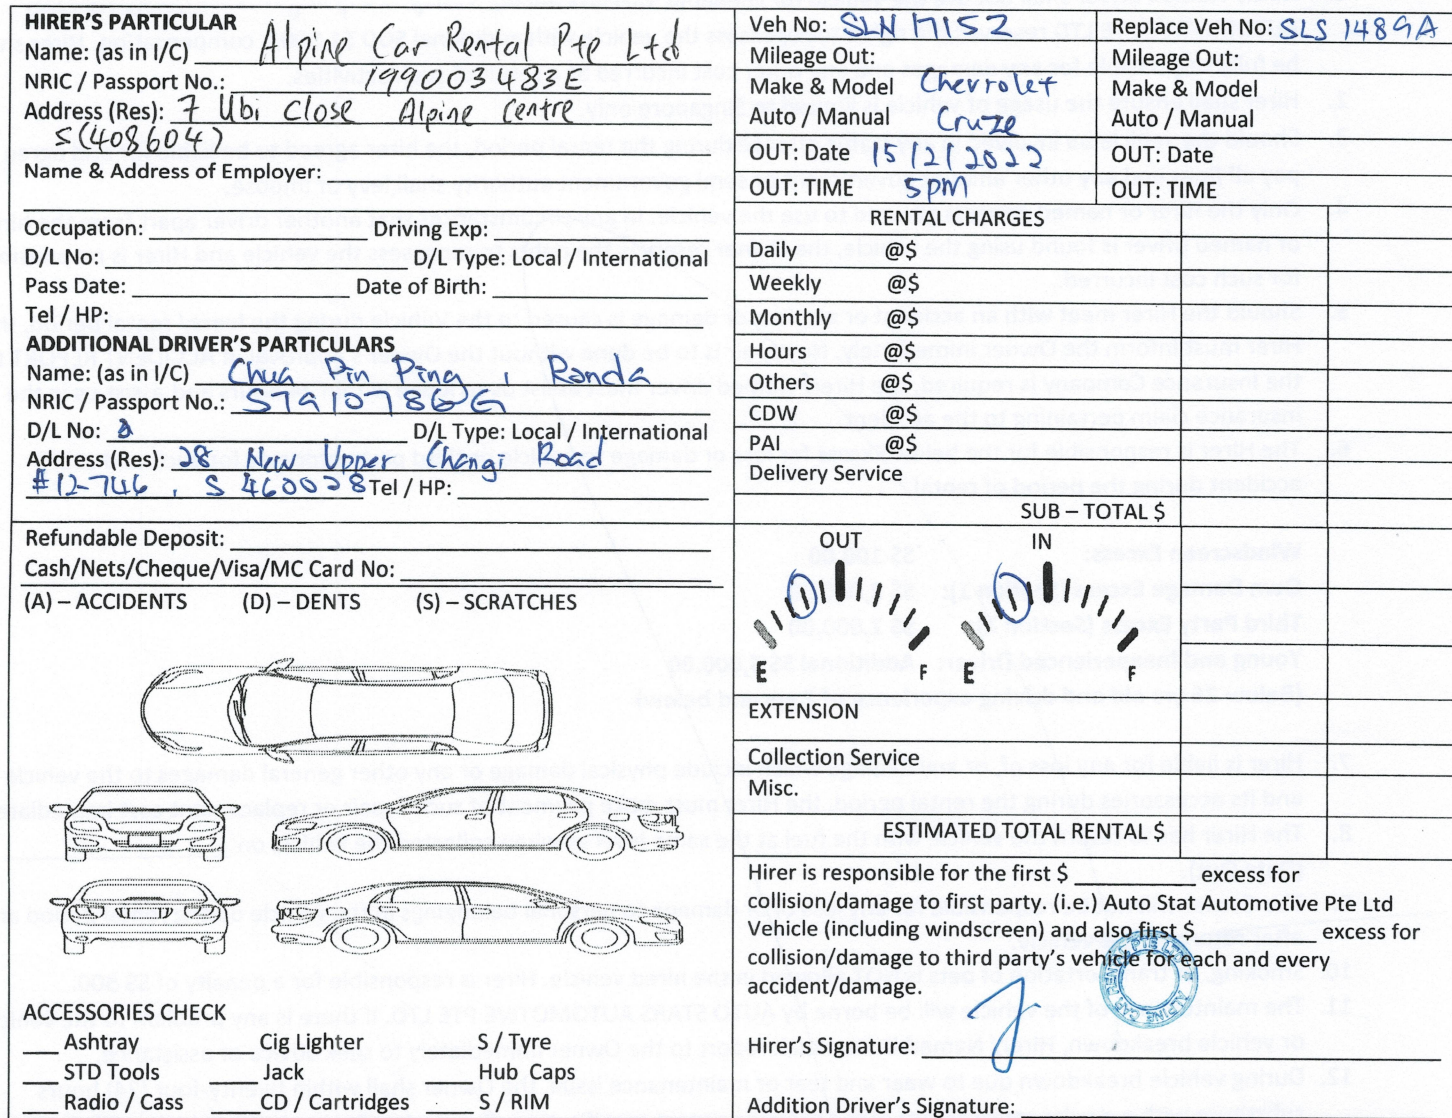 HIRER'S PARTICULAR
Name: (as in I/C) Alpine Car Rental Pte Ltd
NRIC / Passport No.: 199003483E
Address (Res): 7 Ubi Close Alpine Centre
S(408604)
Name & Address of Employer:
Occupation: Driving Exp:
D/L No: D/L Type: Local / International
Pass Date: Date of Birth:
Tel / HP:
ADDITIONAL DRIVER'S PARTICULARS
Name: (as in I/C) Chua Pin Ping, Randa
NRIC / Passport No.:
D/L No: D/L Type: Local / International
Address (Res): 28 New Upper Changi Road
#12-746, S 460028 Tel / HP:
Refundable Deposit:
Cash/Nets/Cheque/Visa/MC Card No:
(A) – ACCIDENTS (D) – DENTS (S) – SCRATCHES
ACCESSORIES CHECK
Ashtray Cig Lighter S / Tyre
STD Tools Jack Hub Caps
Radio / Cass CD / Cartridges S / RIM
Veh No: SLN 7152 Replace Veh No: SLS 1489A
Mileage Out: Mileage Out:
Make & Model Chevrolet Make & Model
Auto / Manual Cruze Auto / Manual
OUT: Date 15/2/2022 OUT: Date
OUT: TIME 5pm OUT: TIME
RENTAL CHARGES
Daily @$
Weekly @$
Monthly @$
Hours @$
Others @$
CDW @$
PAI @$
Delivery Service
SUB – TOTAL $
OUT IN
E F E F
EXTENSION
Collection Service
Misc.
ESTIMATED TOTAL RENTAL $
Hirer is responsible for the first $ excess for
collision/damage to first party. (i.e.) Auto Stat Automotive Pte Ltd
Vehicle (including windscreen) and also first $ excess for
collision/damage to third party's vehicle for each and every
accident/damage.
Hirer's Signature:
Addition Driver's Signature: